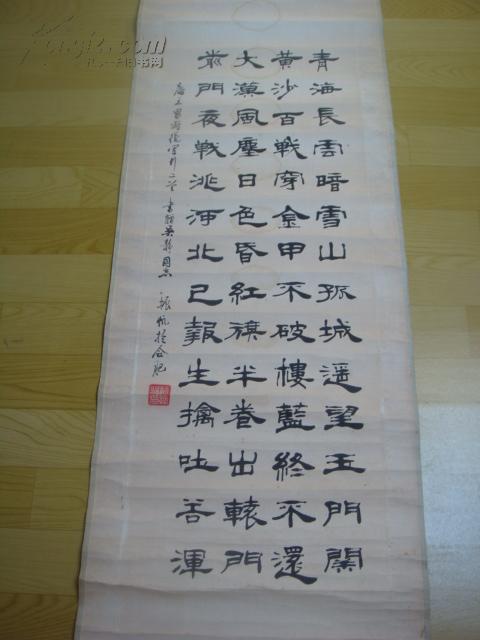 青海長雲暗雪山孤城遥望玉門關
黄沙百戰穿金甲不破樓藍終不還
大漠風塵日色昏紅旗半卷出轅門
前門夜戰洮河北已報生擒吐谷渾
唐王昌齡從軍行二首 書贈同志 於合肥